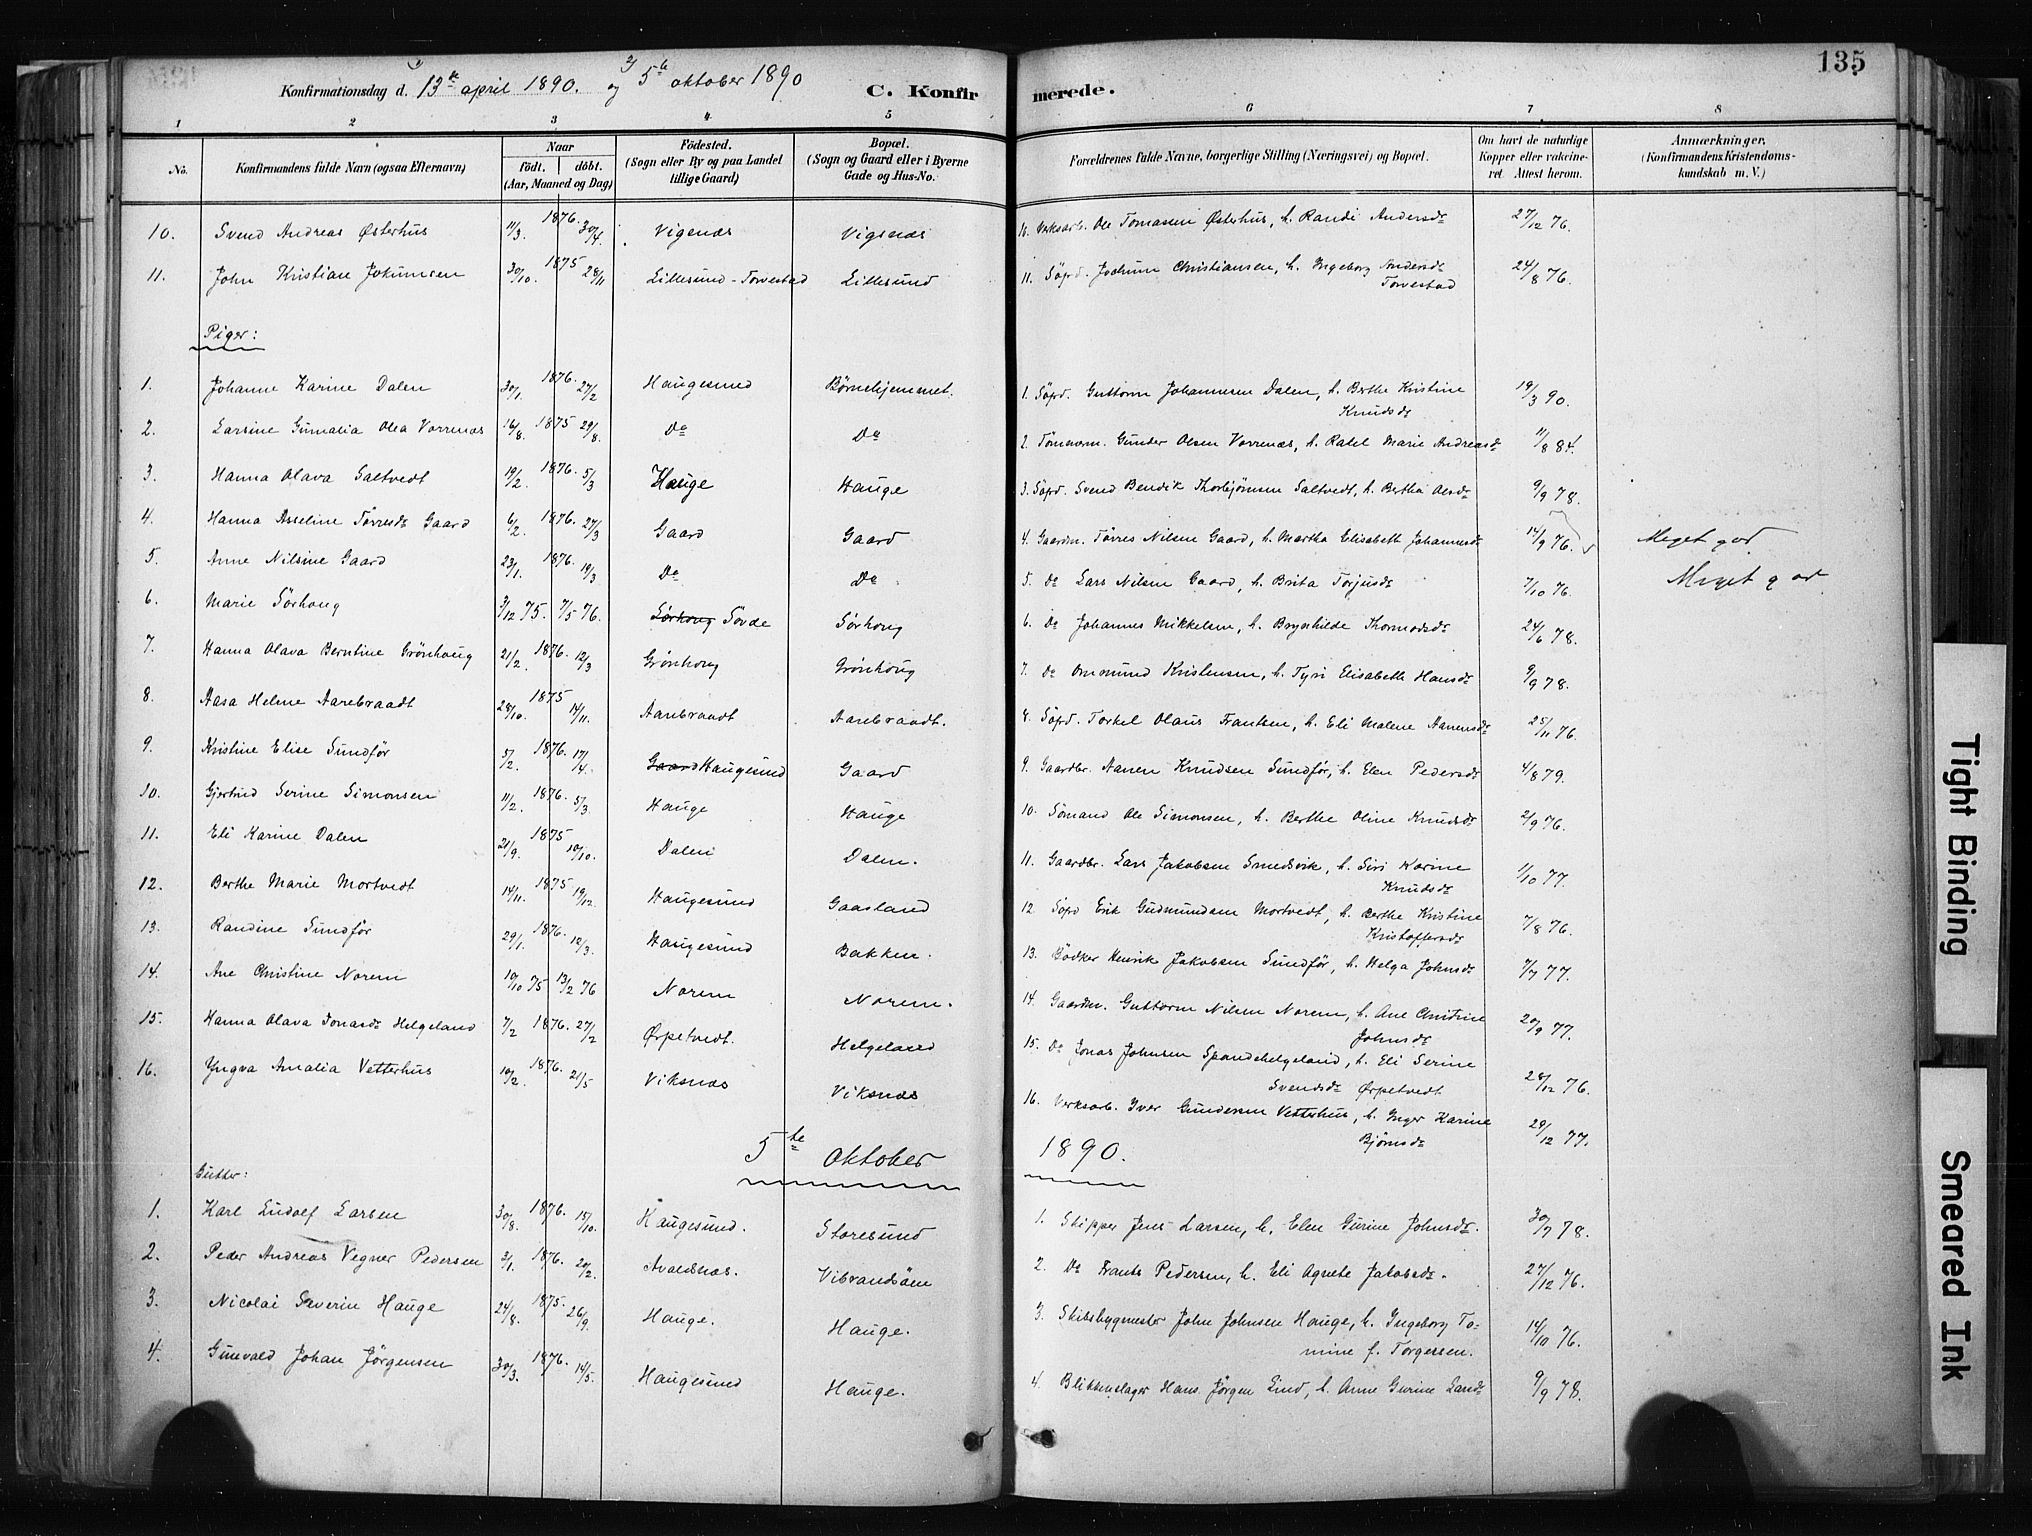 Konfirmationsdag d. 1) 13de april 1890. og 2) 5te oktober 1890
C. Konfirmerede.
135
1 2 3 4 5 6 7 8
No.
Konfirmandens fulde Navn (ogsaa Efternavn)
Naar
födt. döbt.
(Aar, Maaned og Dag)
Födested.
(Sogn eller By og paa Landet tillige Gaard)
Bopæl.
(Sogn og Gaard eller i Byerne Gade og Hus-No.
Forældrenes fulde Navne, borgerlige Stilling (Næringsvei) og Bopæl.
Om havt de naturlige Kopper eller vaccineret. Attest herom.
Anmærkninger.
(Konfirmandens Kristendomskundskab m. V.)
10. Svend Andreas Østerhus 11/3. 1876. 30/4. Vigsnæs Vigsnæs 10. Verksarb. Ole Tomassen Østerhus, h. Randi Andersdr 27/12 76.
11. John Kristian Jokumsen 30/10. 1875 28/11 Lillesund-Torvestad Lillesund 11. Söfd. Jochum Christiansen, h. Ingeborg Andersdr Torvestad 24/8 76.
Piger:
1. Johanne Karine Dalen 30/1. 1876. 27/2 Haugesund Børnehjemmet. 1. Söfd. Guttorm Johannesen Dalen, h. Berthe Kristine Knudsdr 19/3 90.
2. Larsine Gumalia Olea Vorrenæs 16/8. 1875 29/8. Do Do 2. Tömmerm. Gunder Olsen Vorrenæs, h. Rakel Marie Andreasdr 11/8 84.
3. Hanna Olava Saltvedt 19/2. 1876. 5/3 Hauge Hauge 3. Söfd. Svend Bendik Thorbjørnsen Saltvedt, h. Bertha Olsdr 9/9 78.
4. Hanna Asseline Törresdr Gaard 6/2. 1876. 27/3 Gaard Gaard 4. Gaardm. Törres Nilsen Gaard, h. Martha Elisabeth Johannesdr 14/9 76. Meget god
5. Anne Nilsine Gaard 23/1. 1876. 19/3. Do Do 5. Do Lars Nilsen Gaard, h. Brita Torjusdr 7/10 76. Meget god
6. Marie Sörhoug 3/12 75. 7/5 76. Sörhoug Sövde Sørhoug 6. Do Johannes Mikkelsen, h. Brynhilde Thormodsdr 24/6 78.
7. Hanna Olava Berntine Grönhoug 21/2. 1876. 12/3 Grønhoug Grønhoug 7. Do Ommund Kristensen, h. Tyri Elisabeth Hansdr 9/9 78.
8. Aasa Helene Aarebraadt 28/10. 1875 14/11. Aarebraadt Aarebraadt. 8. Söfd. Torkel Olaus Frantsen, h. Eli Malene Aanensdr 25/11 76.
9. Kristine Elise Sundför 5/2. 1876. 17/4. Gaard Haugesund Gaard 9. Gaardbr. Aanen Knudsen Sundför, h. Elen Pedersdr 4/8 79.
10. Gjertrud Serine Simonsen 11/2. 1876. 5/3. Hauge Hauge 10. Sömand Ole Simonsen, h. Berthe Oline Knudsdr 2/9 76.
11. Eli Karine Dalen 21/9. 1875 10/10. Dalen Dalen. 11. Gaardbr. Lars Jakobsen Smedsvik, h. Siri Karine Knudsdr 1/10 77.
12. Berthe Marie Mortvedt 14/11. 1875 19/12. Haugesund Gaasland 12. Söfd Erik Gudmundsen Mortvedt, h. Berthe Kristine Kristoffersdr 7/8 76.
13. Randine Sundför 29/1. 1876. 12/3. Haugesund Bakken. 13. Bödker Henrik Jakobsen Sundför, h. Helga Johnsdr 7/7 77.
14. Ane Christine Norem 10/10 75 13/2 76 Norem Norem. 14. Gaardm. Guttorm Nilsen Norem, h. Ane Christine Johnsdr 20/9 77.
15. Hanna Olava Jonasdr Helgeland 7/2 1876. 27/2 Ørpetvedt. Helgeland 15. Do Jonas Johnsen Spandehelgeland, h. Eli Serine Svendsdr Ørpetvedt 28/12 76.
16. Yngva Amalia Vetterhus 10/2. 1876. 21/5 Viksnæs Viksnæs 16. Verksarb. Iver Gundersen Vetterhus, h. Inger Karine Bjørnsdr 29/12 77.
5te Oktober 1890.
Gutter:
1. Karl Ludolf Larsen 30/8. 1876. 15/10. Haugesund. Storesund 1. Skipper Jens Larsen, h. Elen Gurine Johnsdr. 30/7 78.
2. Peder Andreas Vegner Pedersen 3/1. 1876. 20/2. Avaldsnæs. Vibrandsöen 2. Do Frants Pedersen, h. Eli Agnete Jakobsdr. 27/12 76.
3. Nicolai Severin Hauge 24/8. 1875. 26/9. Hauge. Hauge. 3. Skibsbygmester John Johnsen Hauge, h. Ingeborg Tomine f. Torgersen. 14/10 76.
4. Gunvald Johan Jörgensen 30/3. 1876. 14/5. Haugesund Hauge. 4. Blikkenslager Hans Jörgen Lind, h. Anne Gurine Larsdr 9/9 78.
Tight Binding
Smeared Ink